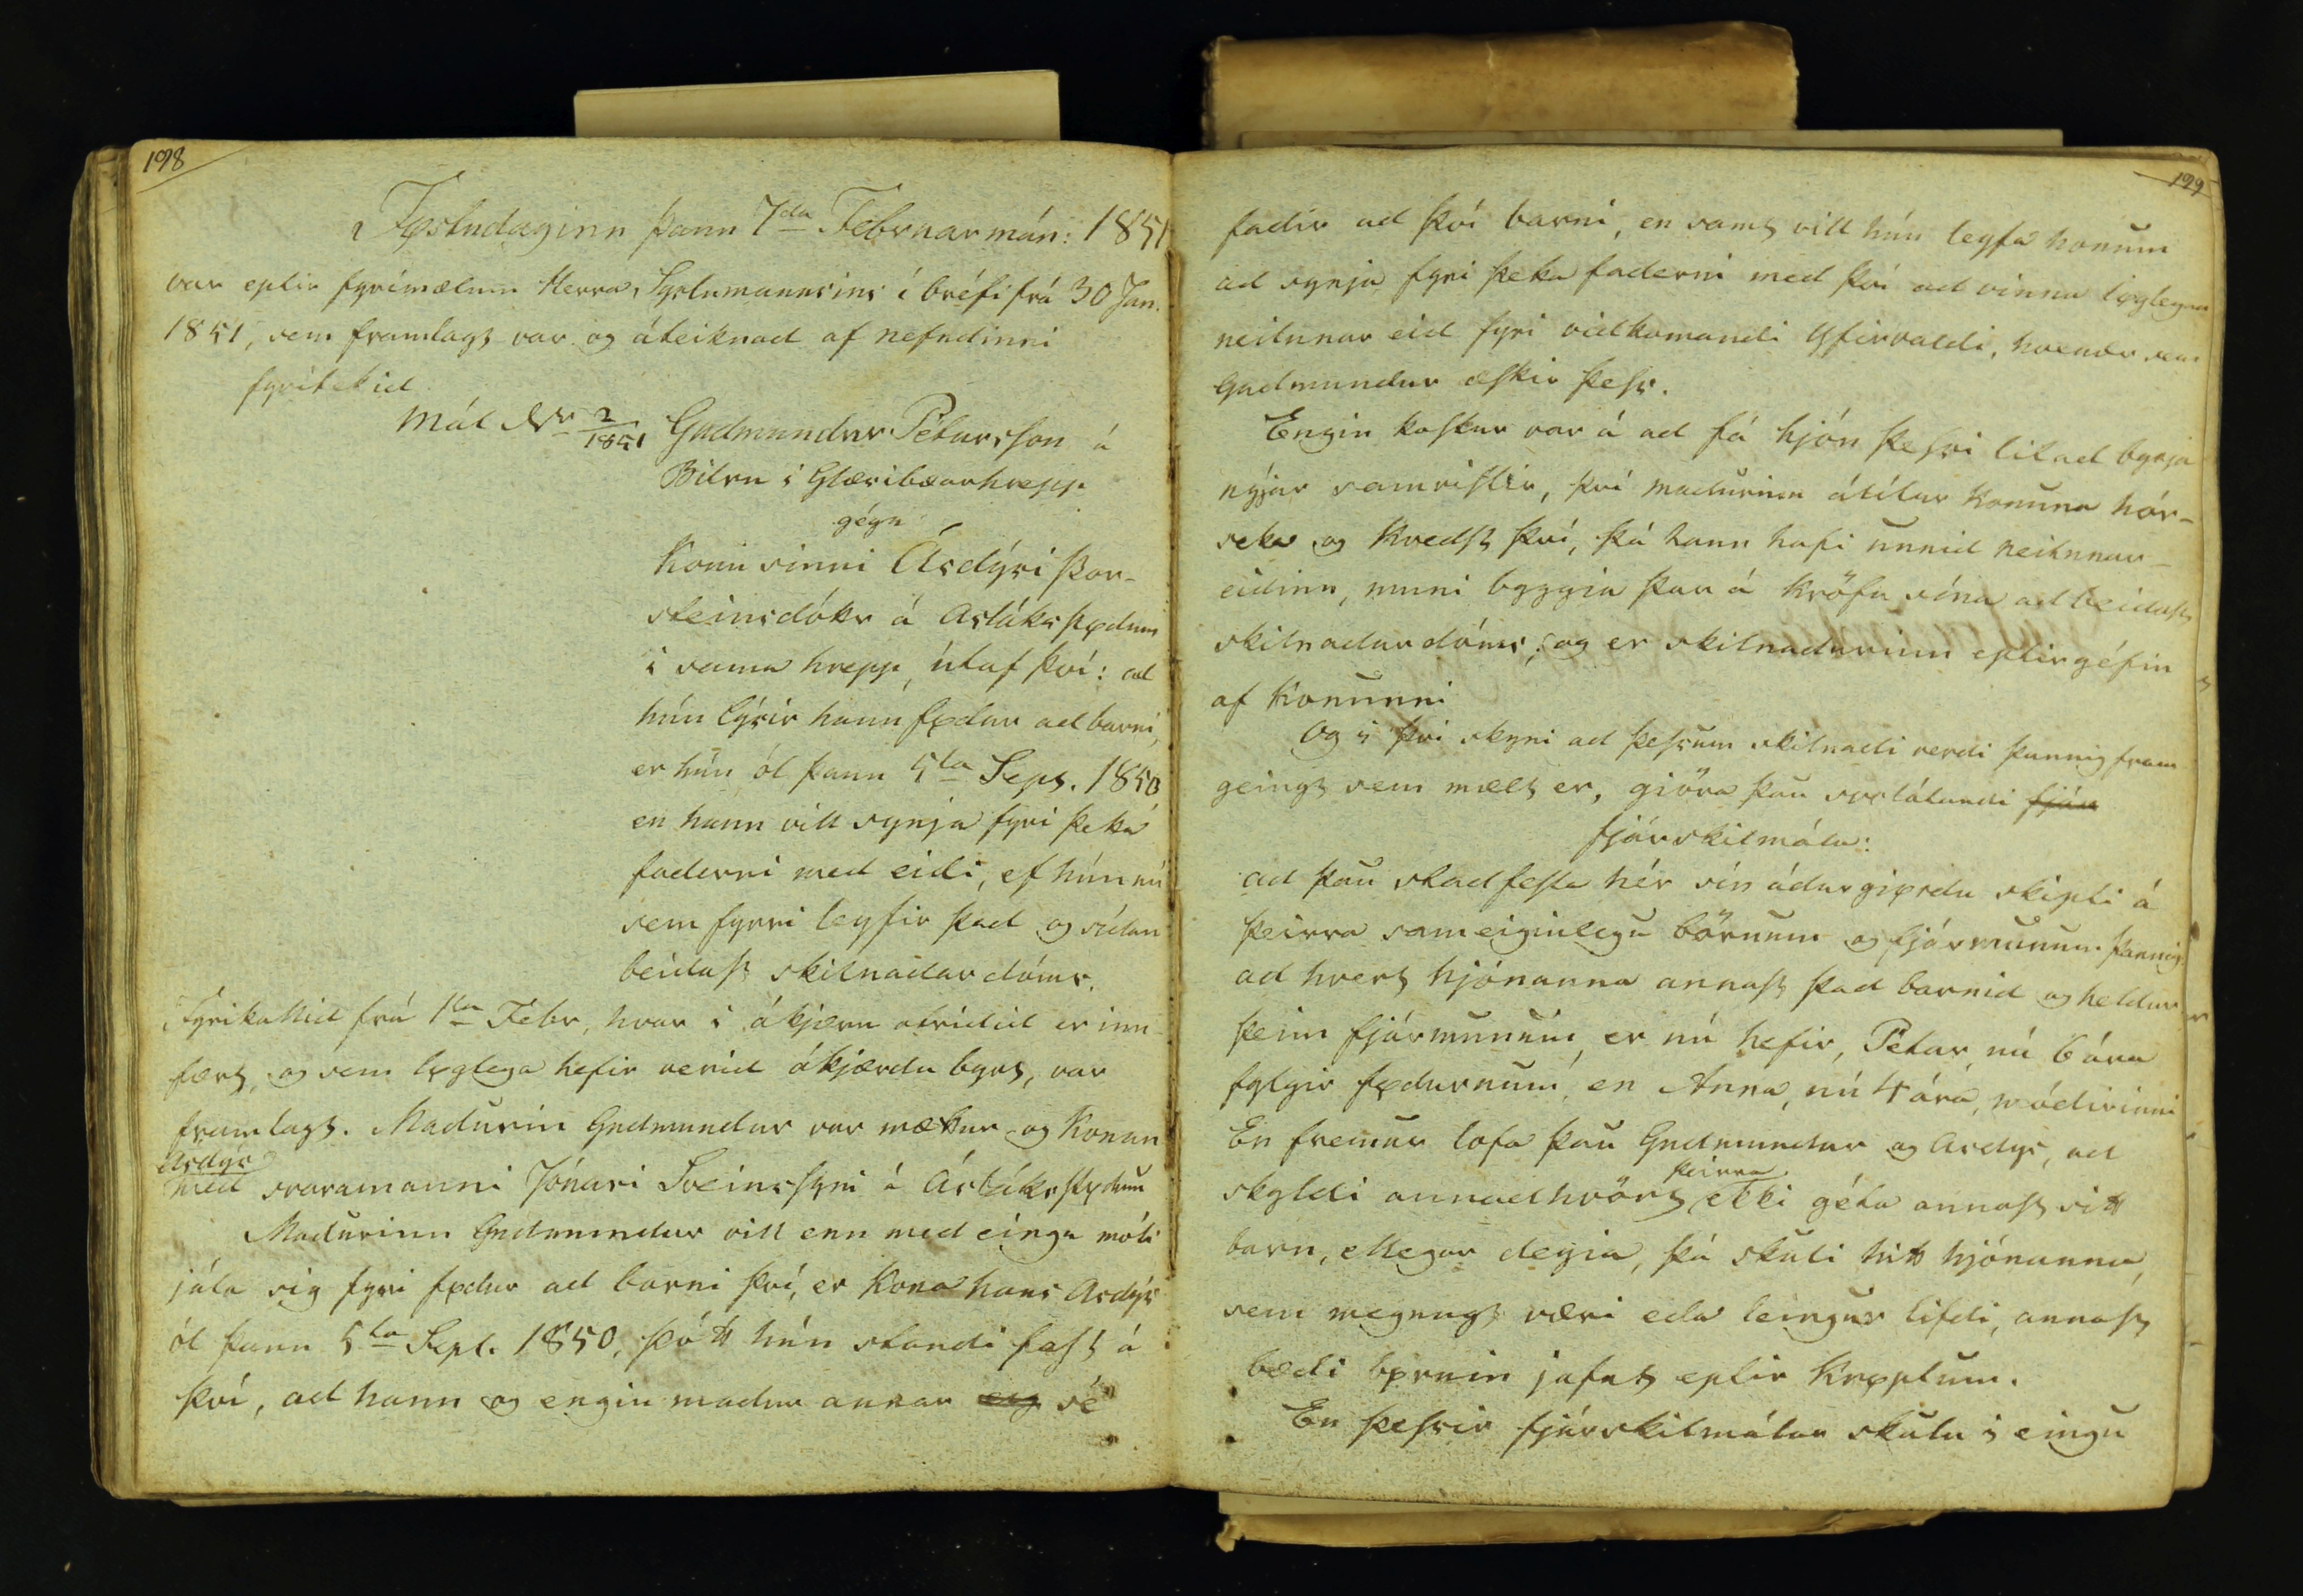 198
Föstudaginn þann 7da Febrúarmán: 1851
var eptir fyrimælum Herra Sýslumannsins í bréfi frá 30 Jan.
1851, sem framlagt var og áteiknad af nefndinni
fyritekid
Mál No 2/1851 Gudmundur Pétursson á
Bitru í Glæsibæarhrepp
gégn
Konu sinni Ásdýsi Þor-
steinsdóttr á Asláksstödum
í sama hrepp, útaf því: ad
hún lýsir hann födur ad barni,
er hún ól þann 5ta Sept. 1850
en hann vill synja fyri þetta
faderni med eidi, ef hún nú
sem fyrri leyfir þad og sídan
beidast skilnadar dóms.
Fyrikallid frá 1ta Febr, hvar í ákjæru atridid er inn
fært, og sem löglega hefir verid ákjærdu byrt, var
framlagt. Madurin Gudmundur var mættur og Konan
Asdýs
med svaramanni Jónasi Sveinssyni á Ásláksstödum
Madurinn Gudmundur vill enn med eingu móti
játa sig fyri födur ad barni því, er Kona hans Asdýs
ól þann 5ta Sept. 1850, þótt hún standi fast á
því, ad hann og engin madur annar eig sé
199
fadir ad því barni, en samt vill hún leyfa honum
ad synja fyri þetta faderni med því ad vinna löglegan
neitunar eid fyri vidkomandi Yfirvaldi, hvenær sem
Gudmundur æskir þess.
Engin kostur var á ad fá hjón þessi til ad byrja
nýjar samvistir, því madurinn átítar Konuna hór-
seka og Kvedst því, þá hann hafi unnid neitunar-
eidinn, muni byggia þar á Kröfu sína ad beidast
skilnadar dóms; og er skilnadurinn eptirgéfin
af Konunni
Og í því skyni ad þessum skilnadi verdi þannig fram
geingt sem mælt er, giöra þau svolátandi fjár
fjárskilmála:
ad þau stadfesta hér sín ádurgiördu skipti á
þeirra sameiginlegu börnum og fjármunum þannig
ad hvert hjónanna annast þad barnid og heldur
þeim fjármunum, er nú hefir, Pétur, nú 6 ára
fylgir födurnum, en Anna, nú 4 ára, módirinni
En fremur lofa þau Gudmundur og Asdys, ad
þeirra
skyldi annadhvört ekki géta annast sitt
barn, ellegar deyia, þá skuli hitt hjónanna,
sem megnugt væri eda leingur lifdi, annast
bædi börnin jafnt eptir Kröptum.
En þessir fjárskilmálar skulu í eingu